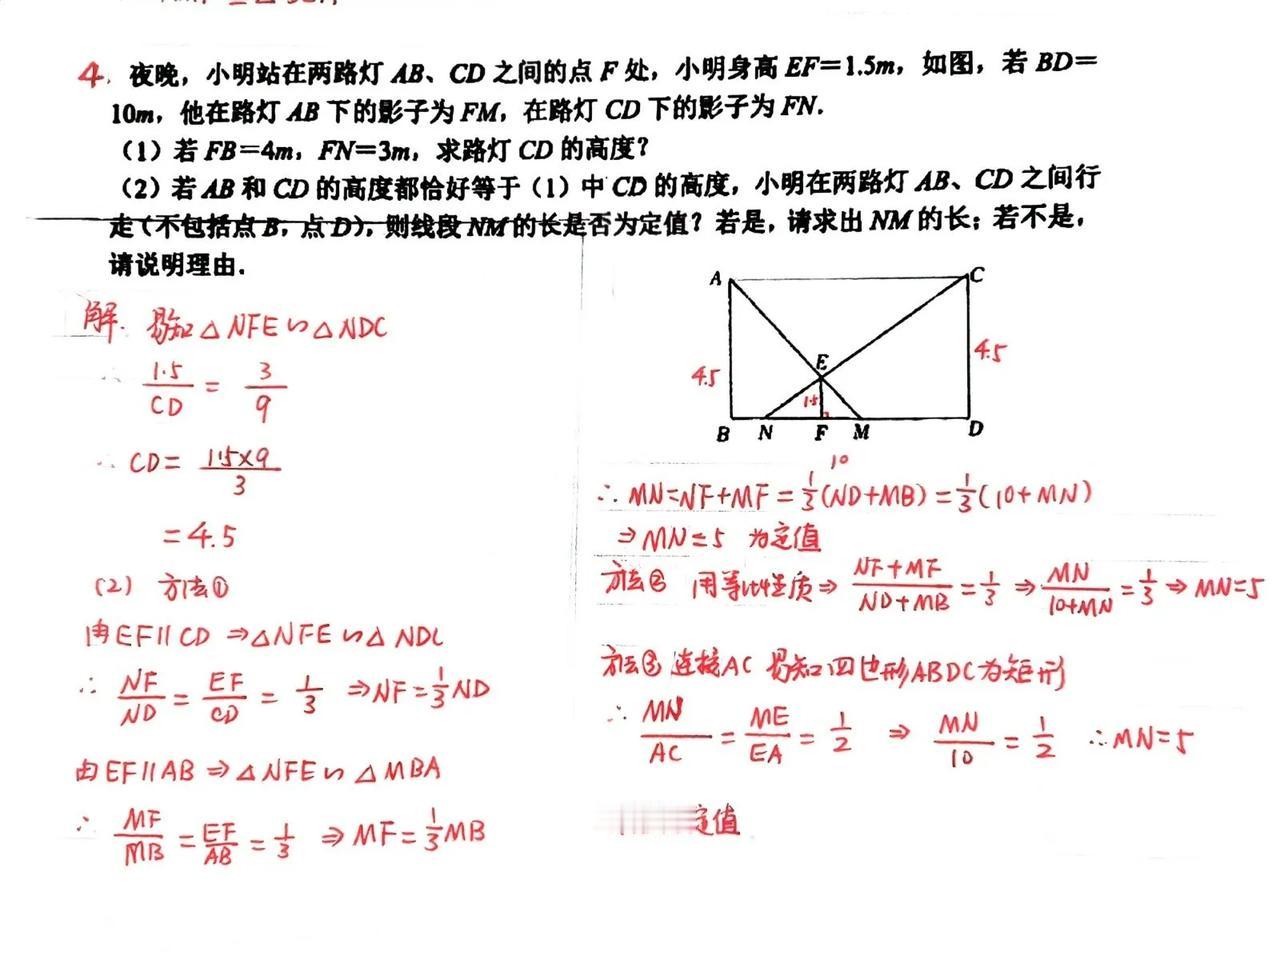 4. 夜晚，小明站在两路灯 AB、CD 之间的点 F 处，小明身高 EF＝1.5m，如图，若 BD＝
10m，他在路灯 AB 下的影子为 FM，在路灯 CD 下的影子为 FN.
（1）若 FB＝4m，FN＝3m，求路灯 CD 的高度？
（2）若 AB 和 CD 的高度都恰好等于（1）中 CD 的高度，小明在两路灯 AB、CD 之间行
走（不包括点 B，点 D），则线段 NM 的长是否为定值？若是，请求出 NM 的长；若不是，
请说明理由.
解. 易知△NFE∽△NDC
∴ 1.5/CD = 3/9
∴ CD = 1.5×9/3
= 4.5
(2) 方法①
由EF∥CD ⇒△NFE∽△NDC
∴ NF/ND = EF/CD = 1/3 ⇒NF=1/3ND
由EF∥AB ⇒△NFE∽△MBA
∴ MF/MB = EF/AB = 1/3 ⇒ MF=1/3MB
A C
4.5 E 4.5
1.5
B N F M D
10
∴ MN=NF+MF=1/3(ND+MB)=1/3(10+MN)
⇒MN=5 为定值
方法② 用等比性质⇒ NF+MF/ND+MB = 1/3 ⇒ MN/10+MN = 1/3 ⇒ MN=5
方法③ 连接AC 易知四边形ABDC为矩形
∴ MN/AC = ME/EA = 1/2 ⇒ MN/10 = 1/2 ∴MN=5
定值